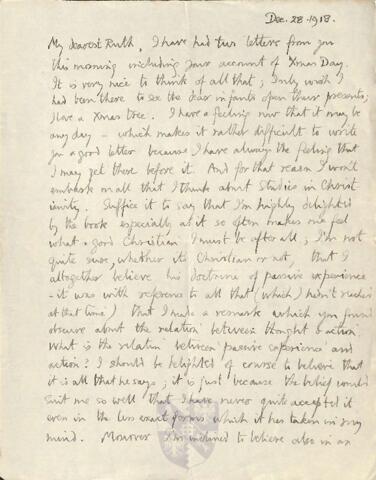 Dec. 28. 1918.
My dearest Ruth, I have had two letters from you
this morning including your account of Xmas Day.
It is very nice to think of all that; I only wish I
had been there to see the dear infants open their presents;
I love a Xmas tree. I have a feeling now that it may be
any day - which makes it rather difficult to write
you a good letter because I have always the feeling that
I may get there before it. And for that reason I won't
embark on all that I think about Studies in Christ
ianity. Suffice it to say that I'm highly delighted
by the book especially as it so often makes one feel
what a good Christian I must be after all; I'm not
quite sure, whether it's Christian or not, that I
altogether believe his doctrine of passive experience
- it was with reference to all that (which I hadn't
at that time) that I made a remark which you found
obscure about the relation between thought & action.
What is the relation between passive experience and
action? I should be delighted of course to believe that
it is all that he says; it is just because the belief would
suit me so well that I have never quite accepted it
even in the less exact forms which it has taken in my
mind. Moreover I'm inclined to believe also in an